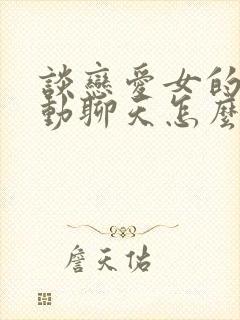 談戀愛女的
動聊天怎麼
詹天佑